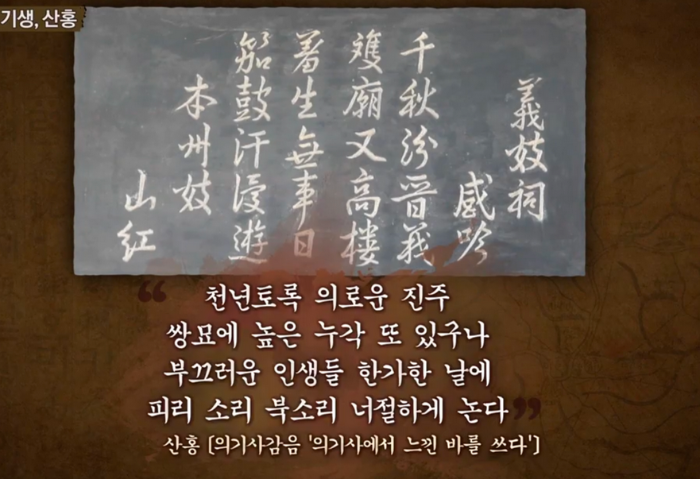 기생, 산홍
義妓祠
感吟
千秋汾晉義
雙廟又高樓
羞生無事日
笳鼓汗漫遊
本州妓
山紅
“천년토록 의로운 진주
쌍묘에 높은 누각 또 있구나
부끄러운 인생들 한가한 날에
피리 소리 북소리 너절하게 논다”
산홍 [의기사감음 '의기사에서 느낀 바를 쓰다']